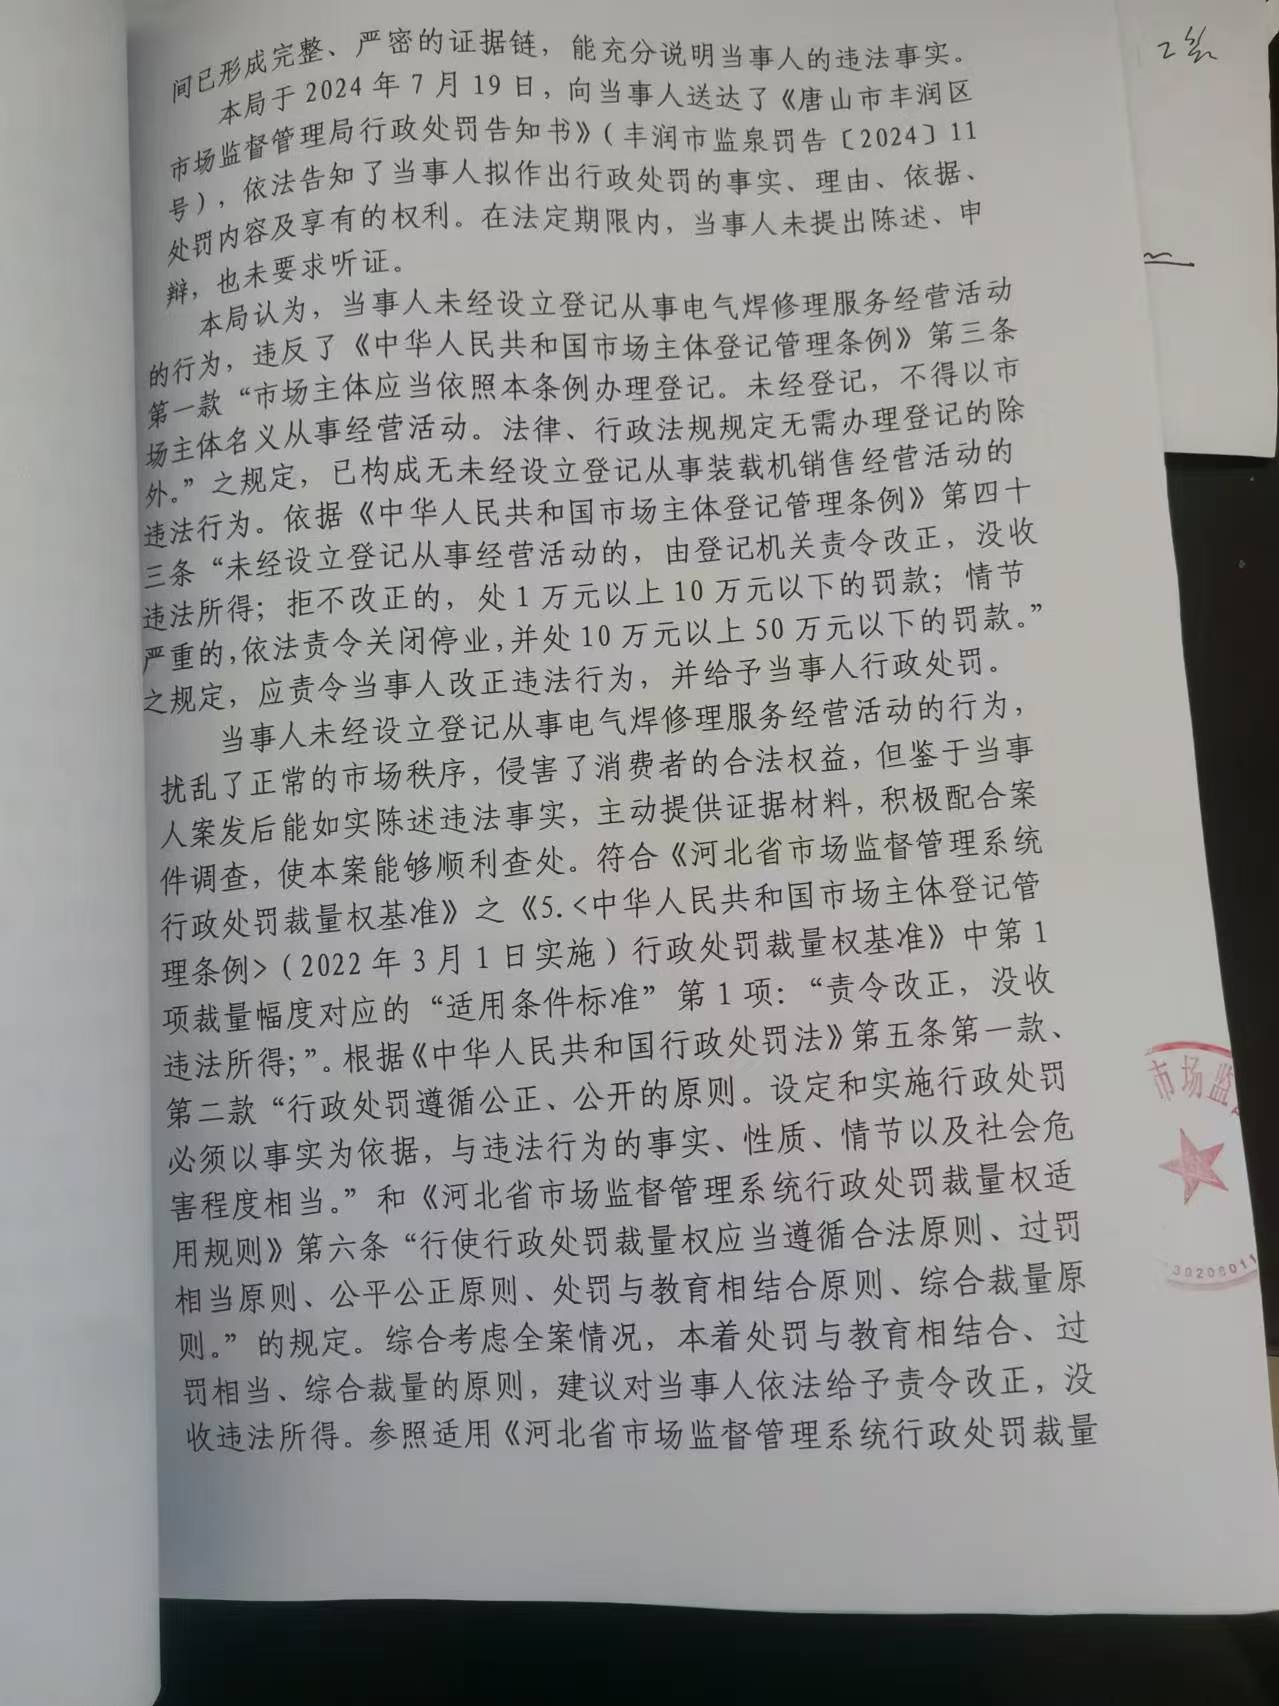 间已形成完整、严密的证据链，能充分说明当事人的违法事实。
本局于2024年7月19日，向当事人送达了《唐山市丰润区
市场监督管理局行政处罚告知书》（丰润市监泉罚告〔2024〕11
号），依法告知了当事人拟作出行政处罚的事实、理由、依据、
处罚内容及享有的权利。在法定期限内，当事人未提出陈述、申
辩，也未要求听证。
本局认为，当事人未经设立登记从事电气焊修理服务经营活动
的行为，违反了《中华人民共和国市场主体登记管理条例》第三条
第一款“市场主体应当依照本条例办理登记。未经登记，不得以市
场主体名义从事经营活动。法律、行政法规规定无需办理登记的除
外。”之规定，已构成无未经设立登记从事装载机销售经营活动的
违法行为。依据《中华人民共和国市场主体登记管理条例》第四十
三条“未经设立登记从事经营活动的，由登记机关责令改正，没收
违法所得；拒不改正的，处1万元以上10万元以下的罚款；情节
严重的，依法责令关闭停业，并处10万元以上50万元以下的罚款。”
之规定，应责令当事人改正违法行为，并给予当事人行政处罚。
当事人未经设立登记从事电气焊修理服务经营活动的行为，
扰乱了正常的市场秩序，侵害了消费者的合法权益，但鉴于当事
人案发后能如实陈述违法事实，主动提供证据材料，积极配合案
件调查，使本案能够顺利查处。符合《河北省市场监督管理系统
行政处罚裁量权基准》之《5.<中华人民共和国市场主体登记管
理条例>（2022年3月1日实施）行政处罚裁量权基准》中第1
项裁量幅度对应的“适用条件标准”第1项：“责令改正，没收
违法所得；”。根据《中华人民共和国行政处罚法》第五条第一款、
第二款“行政处罚遵循公正、公开的原则。设定和实施行政处罚
必须以事实为依据，与违法行为的事实、性质、情节以及社会危
害程度相当。”和《河北省市场监督管理系统行政处罚裁量权适
用规则》第六条“行使行政处罚裁量权应当遵循合法原则、过罚
相当原则、公平公正原则、处罚与教育相结合原则、综合裁量原
则。”的规定。综合考虑全案情况，本着处罚与教育相结合、过
罚相当、综合裁量的原则，建议对当事人依法给予责令改正，没
收违法所得。参照适用《河北省市场监督管理系统行政处罚裁量
市场监
30208011